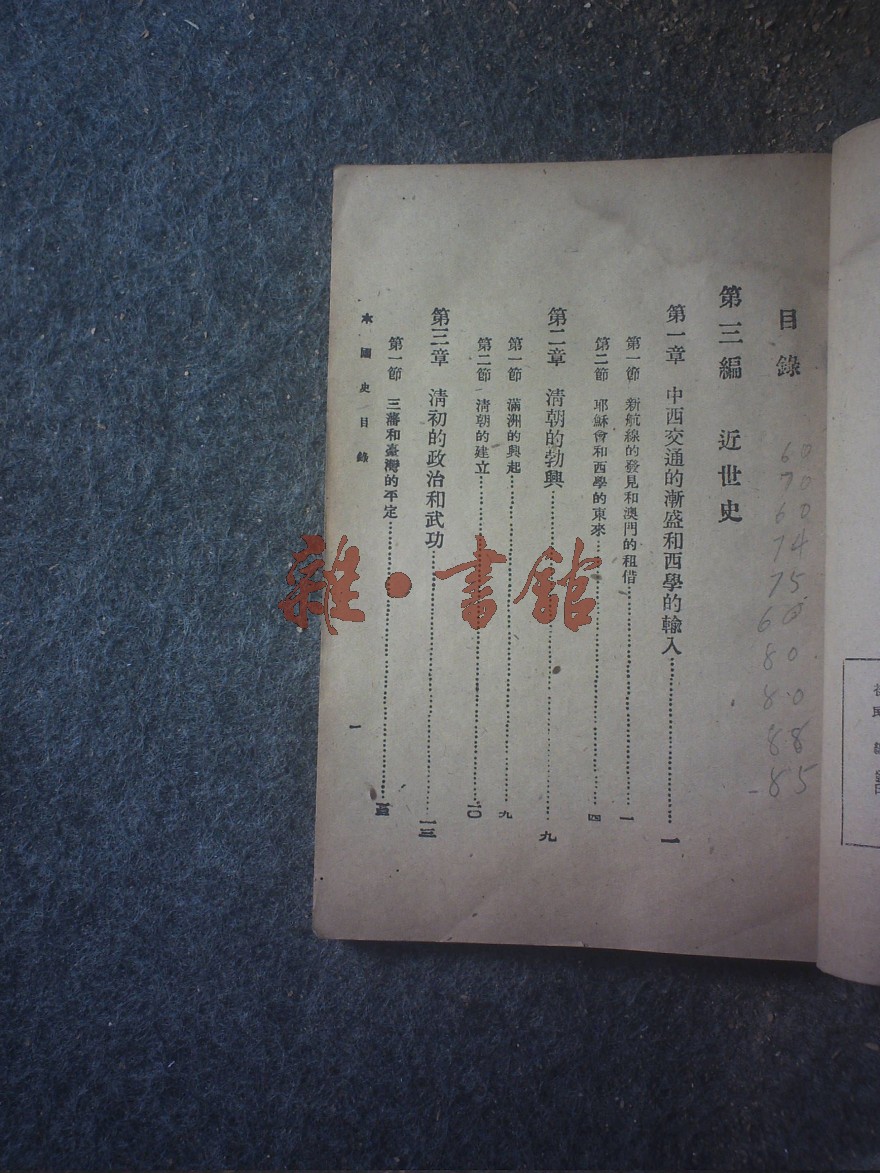 目錄
60
70
60
74
75
60
80
80
88
85
第三編 近世史
第一章 中西交通的漸盛和西學的輸入……一
第一節 新航線的發見和澳門的租借……一
第二節 耶穌會和西學的東來……四
第二章 清朝的勃興……九
第一節 滿洲的興起……九
第二節 清朝的建立……一〇
第三章 清初的政治和武功……一三
第一節 三藩和臺灣的平定……
本國史目錄
一
雜·書舘